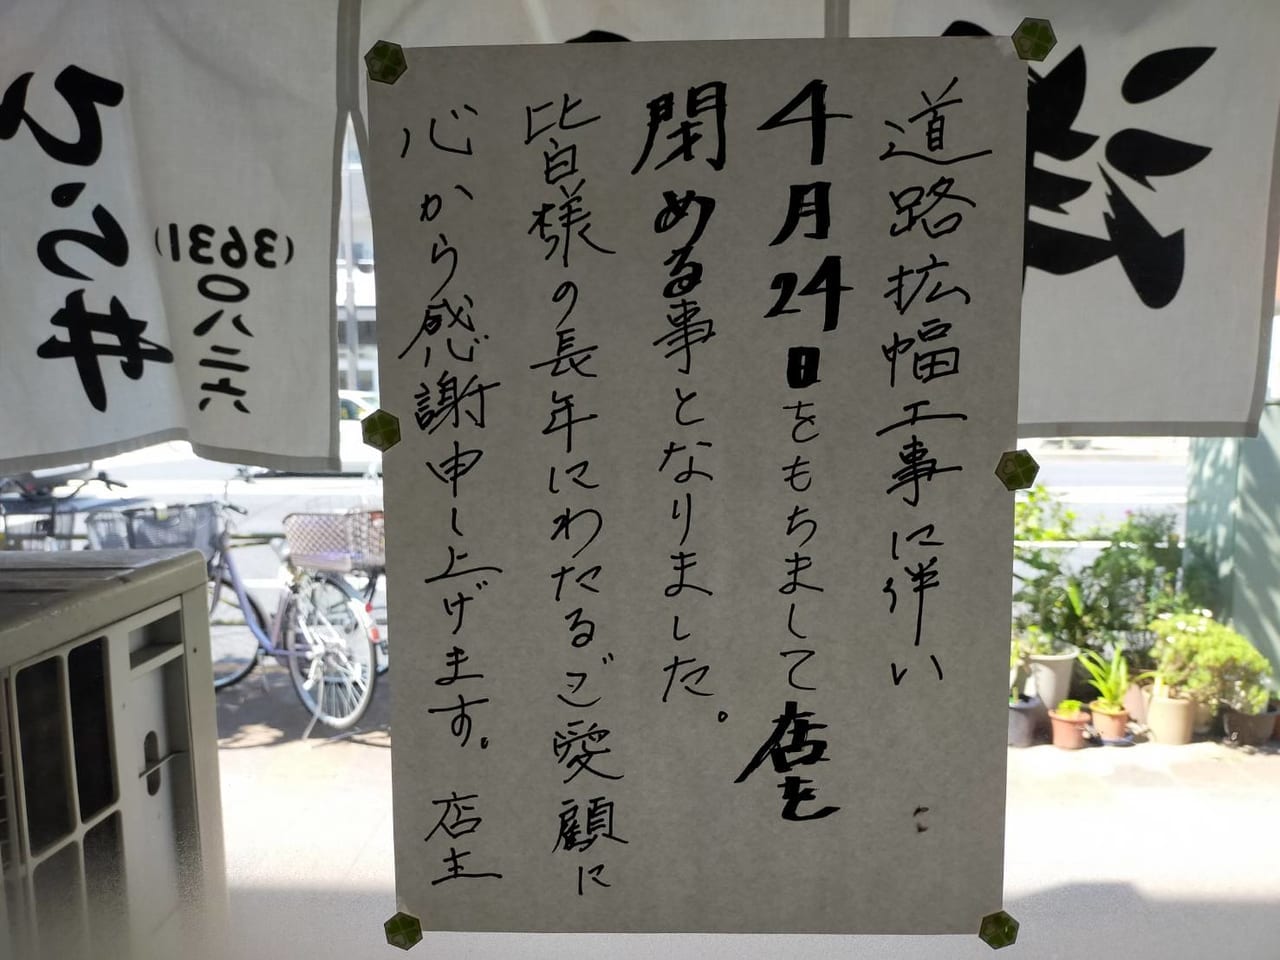 道路拡幅工事に伴い
4月24日をもちまして店を
閉める事となりました。
皆様の長年にわたるご愛顧に
心から感謝申し上げます。店主
ひら井
(3631)
〇八二六